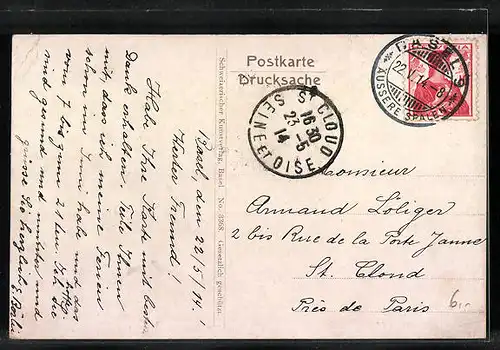 Postkarte
Drucksache
BASEL 3
22.V.14.-8
ÄUSSERE SPALEN
ST CLOUD
16 30
23-5
14
SEINE ET OISE
Schweizerischer Kunstverlag, Basel No. 3268. Gesetzlich geschützt.
Basel, den 22/5/14.!
Werter Freund!
Habe Ihre Karte mit bestem
Dank erhalten. Teile Ihnen
mit, dass ich meine Ferien
schon im Juni habe und das
vom 7 bis zum 21ten. Ich bin
und gesund und munter und
grüsse Sie herzlich,
Monsieur
Armand Löliger
2 bis Rue de la Porte Jaune
St. Cloud
Près de Paris
6.-